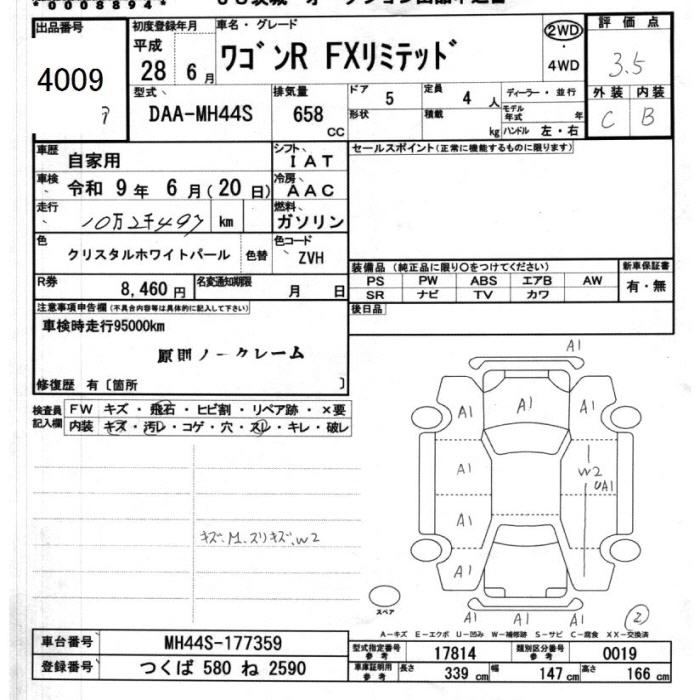 *0008894*
出品番号
4009
初度登録年月
平成
28 6月
車名・グレード
ワゴンR FXリミテッド
2WD
・
4WD
評価点
3.5
外装 内装
C B
型式
DAA-MH44S
排気量
658
CC
ドア 5
形状
定員 4人
積載 kg
ディーラー・並行
モデル年式 年
ハンドル 左・右
車歴
自家用
シフト
IAT
セールスポイント(正常に機能するものに限ります)
車検
令和 9年 6月(20日)
冷房
AAC
走行
10万2千497 km
燃料
ガソリン
色
クリスタルホワイトパール
色替
色コード
ZVH
装備品(純正品に限り○をつけてください)
新車保証書
PS PW ABS エアB AW
有・無
SR ナビ TV カワ
R券
8,460円
名変通知期限
月 日
後日品
注意事項申告欄(不具合内容等は具体的に記入して下さい)
車検時走行95000km
原則ノークレーム
修復歴 有〔箇所 〕
検査員記入欄
FW キズ・飛石・ヒビ割・リペア跡・×要
内装 キズ・汚レ・コゲ・穴・スレ・キレ・破レ
キズ.M.スリキズ.W2
A1
A1 A1 A1
A1 W2
UA1
A1
A1 A1
A1 A1 A1
スペア
2
A-キズ E-エクボ U-凹み W-補修跡 S-サビ C-腐食 XX-交換済
車台番号
MH44S-177359
登録番号
つくば 580 ね 2590
型式指定番号
参考
17814
類別区分番号
参考
0019
車庫証明用
参考
長さ 339cm 幅 147cm 高さ 166cm